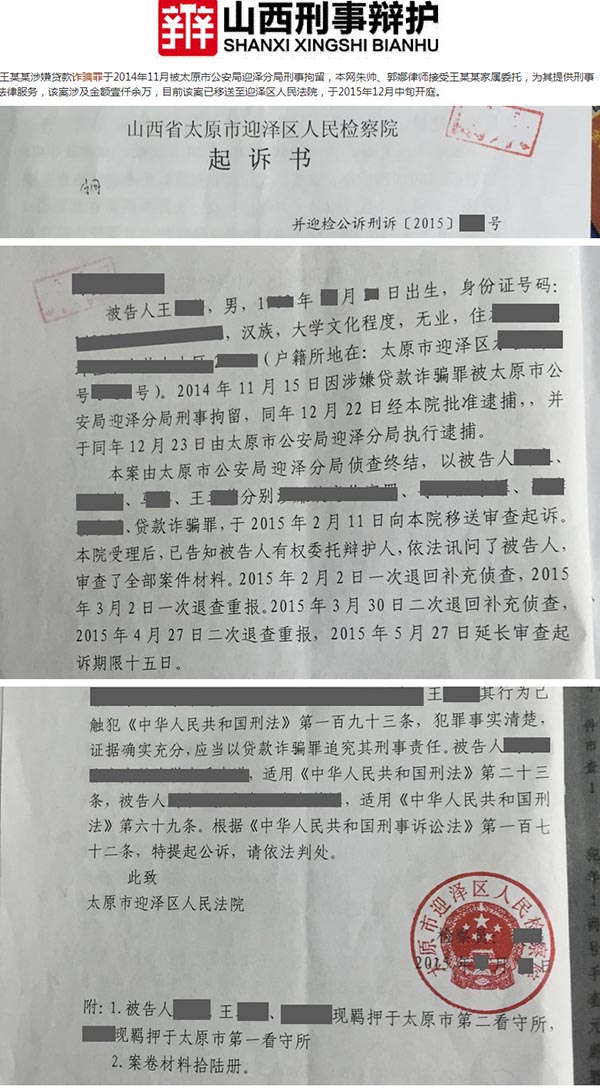 山西刑事辩护
SHANXI XINGSHI BIANHU
王某某涉嫌贷款诈骗罪于2014年11月被太原市公安局迎泽分局刑事拘留，本网朱帅、郭娜律师接受王某某家属委托，为其提供刑事
法律服务，该案涉及金额壹仟余万，目前该案已移送至迎泽区人民法院，于2015年12月中旬开庭。
山西省太原市迎泽区人民检察院
起诉书
并迎检公诉刑诉〔2015〕 号
被告人王 ，男，1 年 月 日出生，身份证号码：
，汉族，大学文化程度，无业，住
（户籍所地在：太原市迎泽区
号 号）。2014年11月15日因涉嫌贷款诈骗罪被太原市公
安局迎泽分局刑事拘留，同年12月22日经本院批准逮捕，，并
于同年12月23日由太原市公安局迎泽分局执行逮捕。
本案由太原市公安局迎泽分局侦查终结，以被告人 、
、 、王 分别 、 、
、贷款诈骗罪，于2015年2月11日向本院移送审查起诉。
本院受理后，已告知被告人有权委托辩护人，依法讯问了被告人，
审查了全部案件材料。2015年2月2日一次退回补充侦查，2015
年3月2日一次退查重报。2015年3月30日二次退回补充侦查，
2015年4月27日二次退查重报，2015年5月27日延长审查起
诉期限十五日。
王 其行为已
触犯《中华人民共和国刑法》第一百九十三条，犯罪事实清楚，
证据确实充分，应当以贷款诈骗罪追究其刑事责任。被告人
，适用《中华人民共和国刑法》第二十三
条，被告人 ，适用《中华人民共和国刑
法》第六十九条。根据《中华人民共和国刑事诉讼法》第一百七
十二条，特提起公诉，请依法判处。
此致
太原市迎泽区人民法院
太原市迎泽区人民检察院
检察员：
2015年 月 日
附：1.被告人 、王 、 现羁押于太原市第二看守所，
现羁押于太原市第一看守所
2.案卷材料拾陆册。